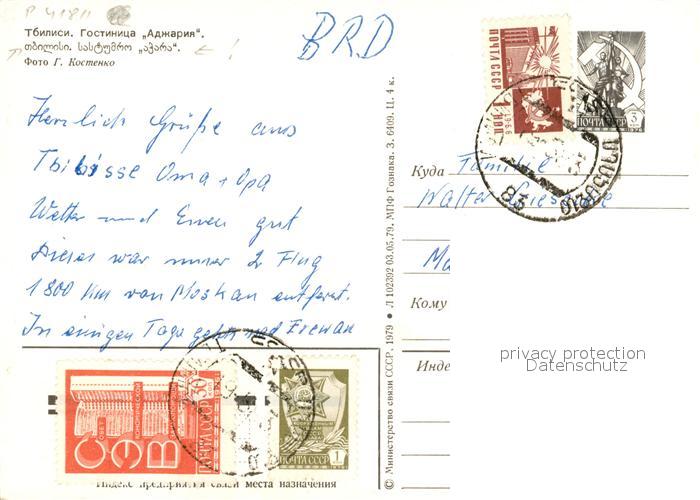 P 41811
BRD
Тбилиси. Гостиница „Аджария".
თბილისი. სასტუმრო „აჭარა".
Фото Г. Костенко
Herzlich Grüße aus
Tbilisse Oma + Opa
Wetter und Essen gut
Dieses war unser 2 Flug
1800 Km von Moskau entfernt.
In einigen Tage geht's nach Erewan
ПОЧТА СССР
1 КОП
1966
ПОЧТА СССР 3
Куда Familie
Walter
Ma
Кому
Инде
privacy protection
Datenschutz
© Министерство связи СССР, 1979 • Л 102392 03.05.79. МПФ Гознака. З. 6409. Ц. 4 к.
СОВЕТ
ЭКОНОМИЧЕСКОЙ
ВЗАИМОПОМОЩИ
ПОЧТА СССР
ПОЧТА СССР 1
Индекс предприятия связи места назначения